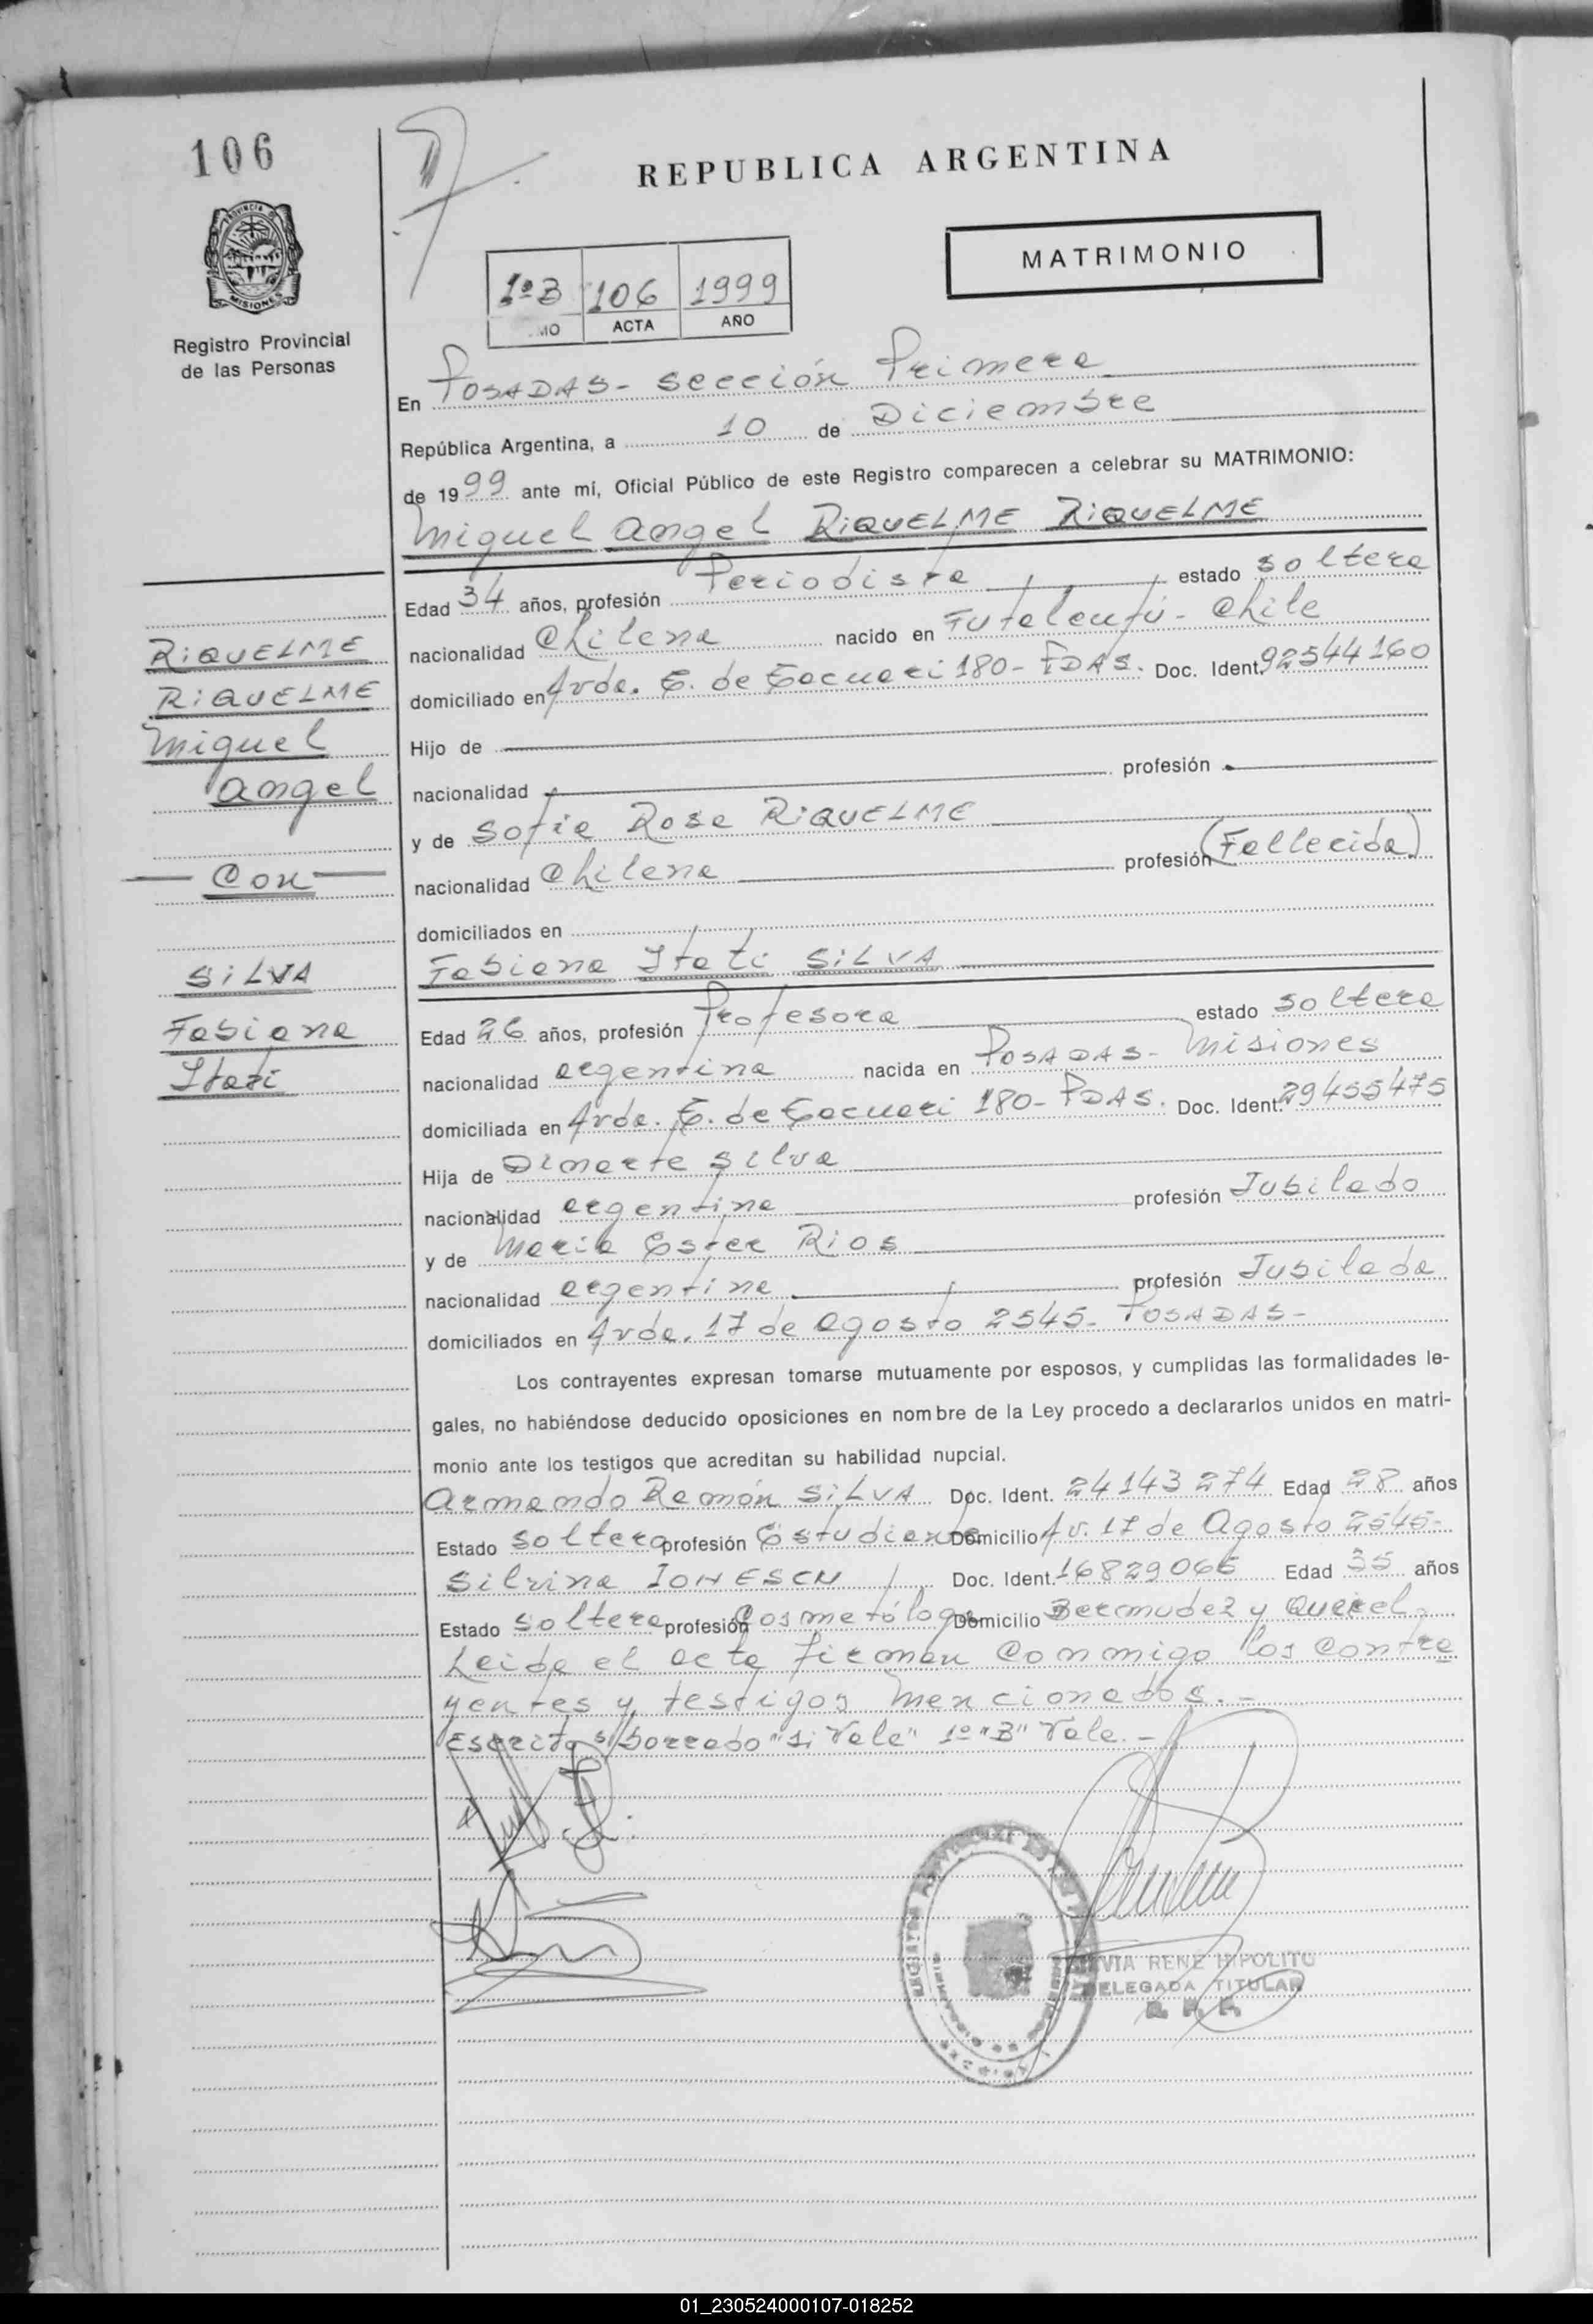 106
REPUBLICA ARGENTINA
PROVINCIA DE
MISIONES
MATRIMONIO
1º B 106 1999
MO ACTA AÑO
Registro Provincial
de las Personas
En POSADAS - Sección Primera
República Argentina, a 10 de Diciembre
de 1999 ante mí, Oficial Público de este Registro comparecen a celebrar su MATRIMONIO:
Miguel Angel RIQUELME RIQUELME
Edad 34 años, profesión Periodista estado soltero
nacionalidad Chilena nacido en Futaleufú - Chile
domiciliado en Avda. E. de Eacuari 180 - PDAS. Doc. Ident. 92544160
Hijo de
nacionalidad profesión
y de Sofia Rosa RIQUELME
nacionalidad Chilena profesión (Fallecida)
domiciliados en
Fabiana Itati SILVA
Edad 26 años, profesión Profesora estado soltera
nacionalidad argentina nacida en POSADAS - Misiones
domiciliada en Avda. E. de Eacuari 180 - PDAS. Doc. Ident. 29455475
Hija de Dimarte Silva
nacionalidad argentina profesión Jubilado
y de María Ester Rios
nacionalidad argentina profesión Jubilada
domiciliados en Avda. 17 de agosto 2545 - POSADAS -
Los contrayentes expresan tomarse mutuamente por esposos, y cumplidas las formalidades le-
gales, no habiéndose deducido oposiciones en nombre de la Ley procedo a declararlos unidos en matri-
monio ante los testigos que acreditan su habilidad nupcial.
Armando Ramón SILVA Doc. Ident. 24143274 Edad 28 años
Estado soltero profesión Estudiante Domicilio Av. 17 de Agosto 2545 -
Silvina IONESCU Doc. Ident. 16829066 Edad 35 años
Estado soltera profesión Cosmetóloga Domicilio Bermudez y Querel
Leida el acta firman conmigo los contra
yentes y testigos mencionados. -
Escrito s/borrado "Si Vale" 1º "B" Vale. -
RIQUELME
RIQUELME
Miguel
Angel
Con
SILVA
Fabiana
Itati
VIA RENE HIPOLITO
DELEGADA TITULAR
R. P. P.
01_230524000107-018252